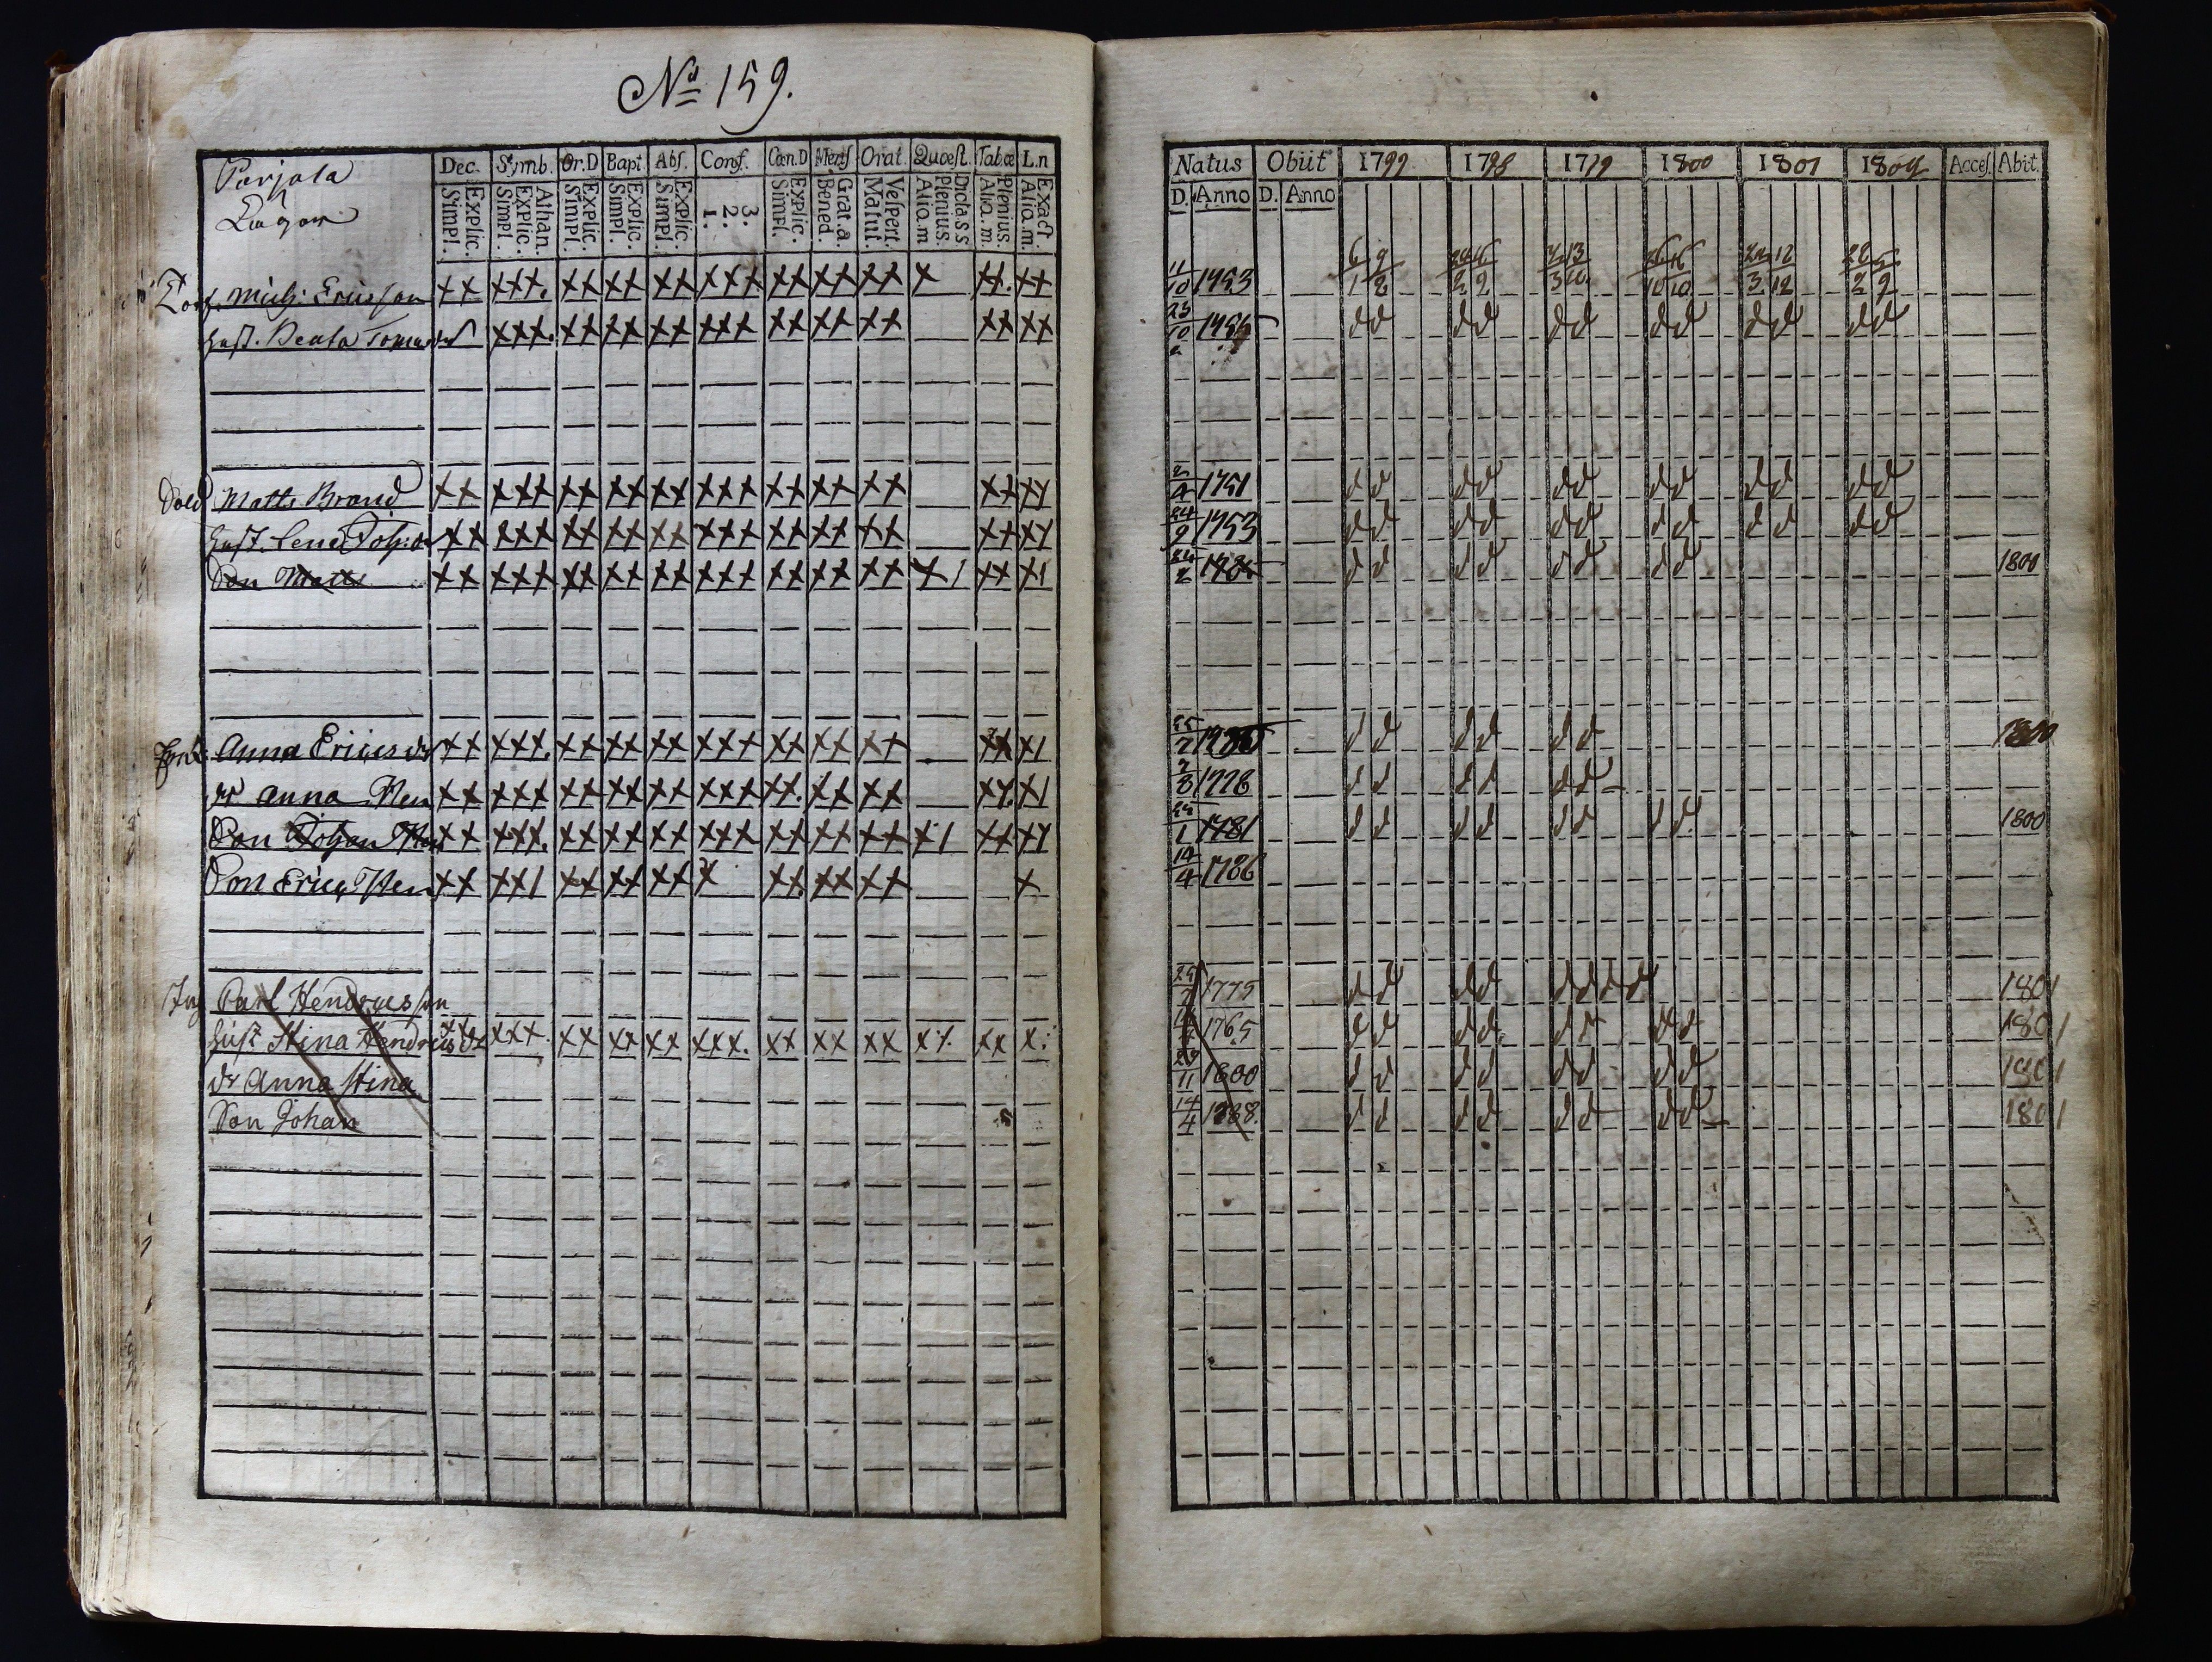 No 159.
Parjala
Dec. Symb. Or.D Bapt. Abſ. Conf. Cœn.D Menſ Orat. Quœſt. Tabœ L.n
Explic. Simpl. Athan. Explic. Simpl. Explic. Simpl. Explic. Simpl. Explic. Simpl. 3. 2. 1. Explic. Simpl. Grat.a. Bened. Veſpert. Matut. Dicta.s s Plenius. Alio.m Plenius. Alio.m. Exact. Alia.m.
Torp. Mich: Ericsson xx xxx. xx xx xx xxx xx xx xx x xx. xx
Hust. Beata xxx. xx xx xx xxx xx xx xx xx xx
Sold Matts Brand xx xxx xx xx xx xxx xx xx xx xx xx
Hust. Lena xx xxx xx xx xx xxx xx xx xx xx xx
Son Matts xx xxx xx xx xx xxx xx xx xx x/ xx x/
Anna Erics dr xx xxx. xx xx xx xxx xx xx xx xx x/
dr Anna Hen xx xxx xx xx xx xxx xx. xx xx xx. x/
Son Johan Hen xx xxx. xx xx xx xxx xx xx xx x/ xx xx
Son Eric Hen xx xx/ xx xx xx x xx. xx xx x
Inh Carl Hendricsson
Hust Stina Hendrics dr xxx. xx xx xx xxx. xx xx xx x/. xx x/
dr Anna Stina
Son Johan
Natus Obiit 1797 1798 1799 1800 1801 1802 Acceſ. Abit.
D. Anno D. Anno
11/10 1753 6/1 9/2
23/10 dd dd dd dd dd dd
2/4 1751 dd dd dd dd dd dd
24/9 1753 dd dd dd dd dd dd
dd dd dd dd 1800
25/7 dd dd dd 1800
2/8 1778 dd dd dd
1781 dd dd dd dd 1800
14/4 1786
1775 dd dd dddd 1801
1765 dd dd dd dd 1801
29/11 1800 dd dd dd dd 1801
14/4 1788. dd dd dd dd 1801